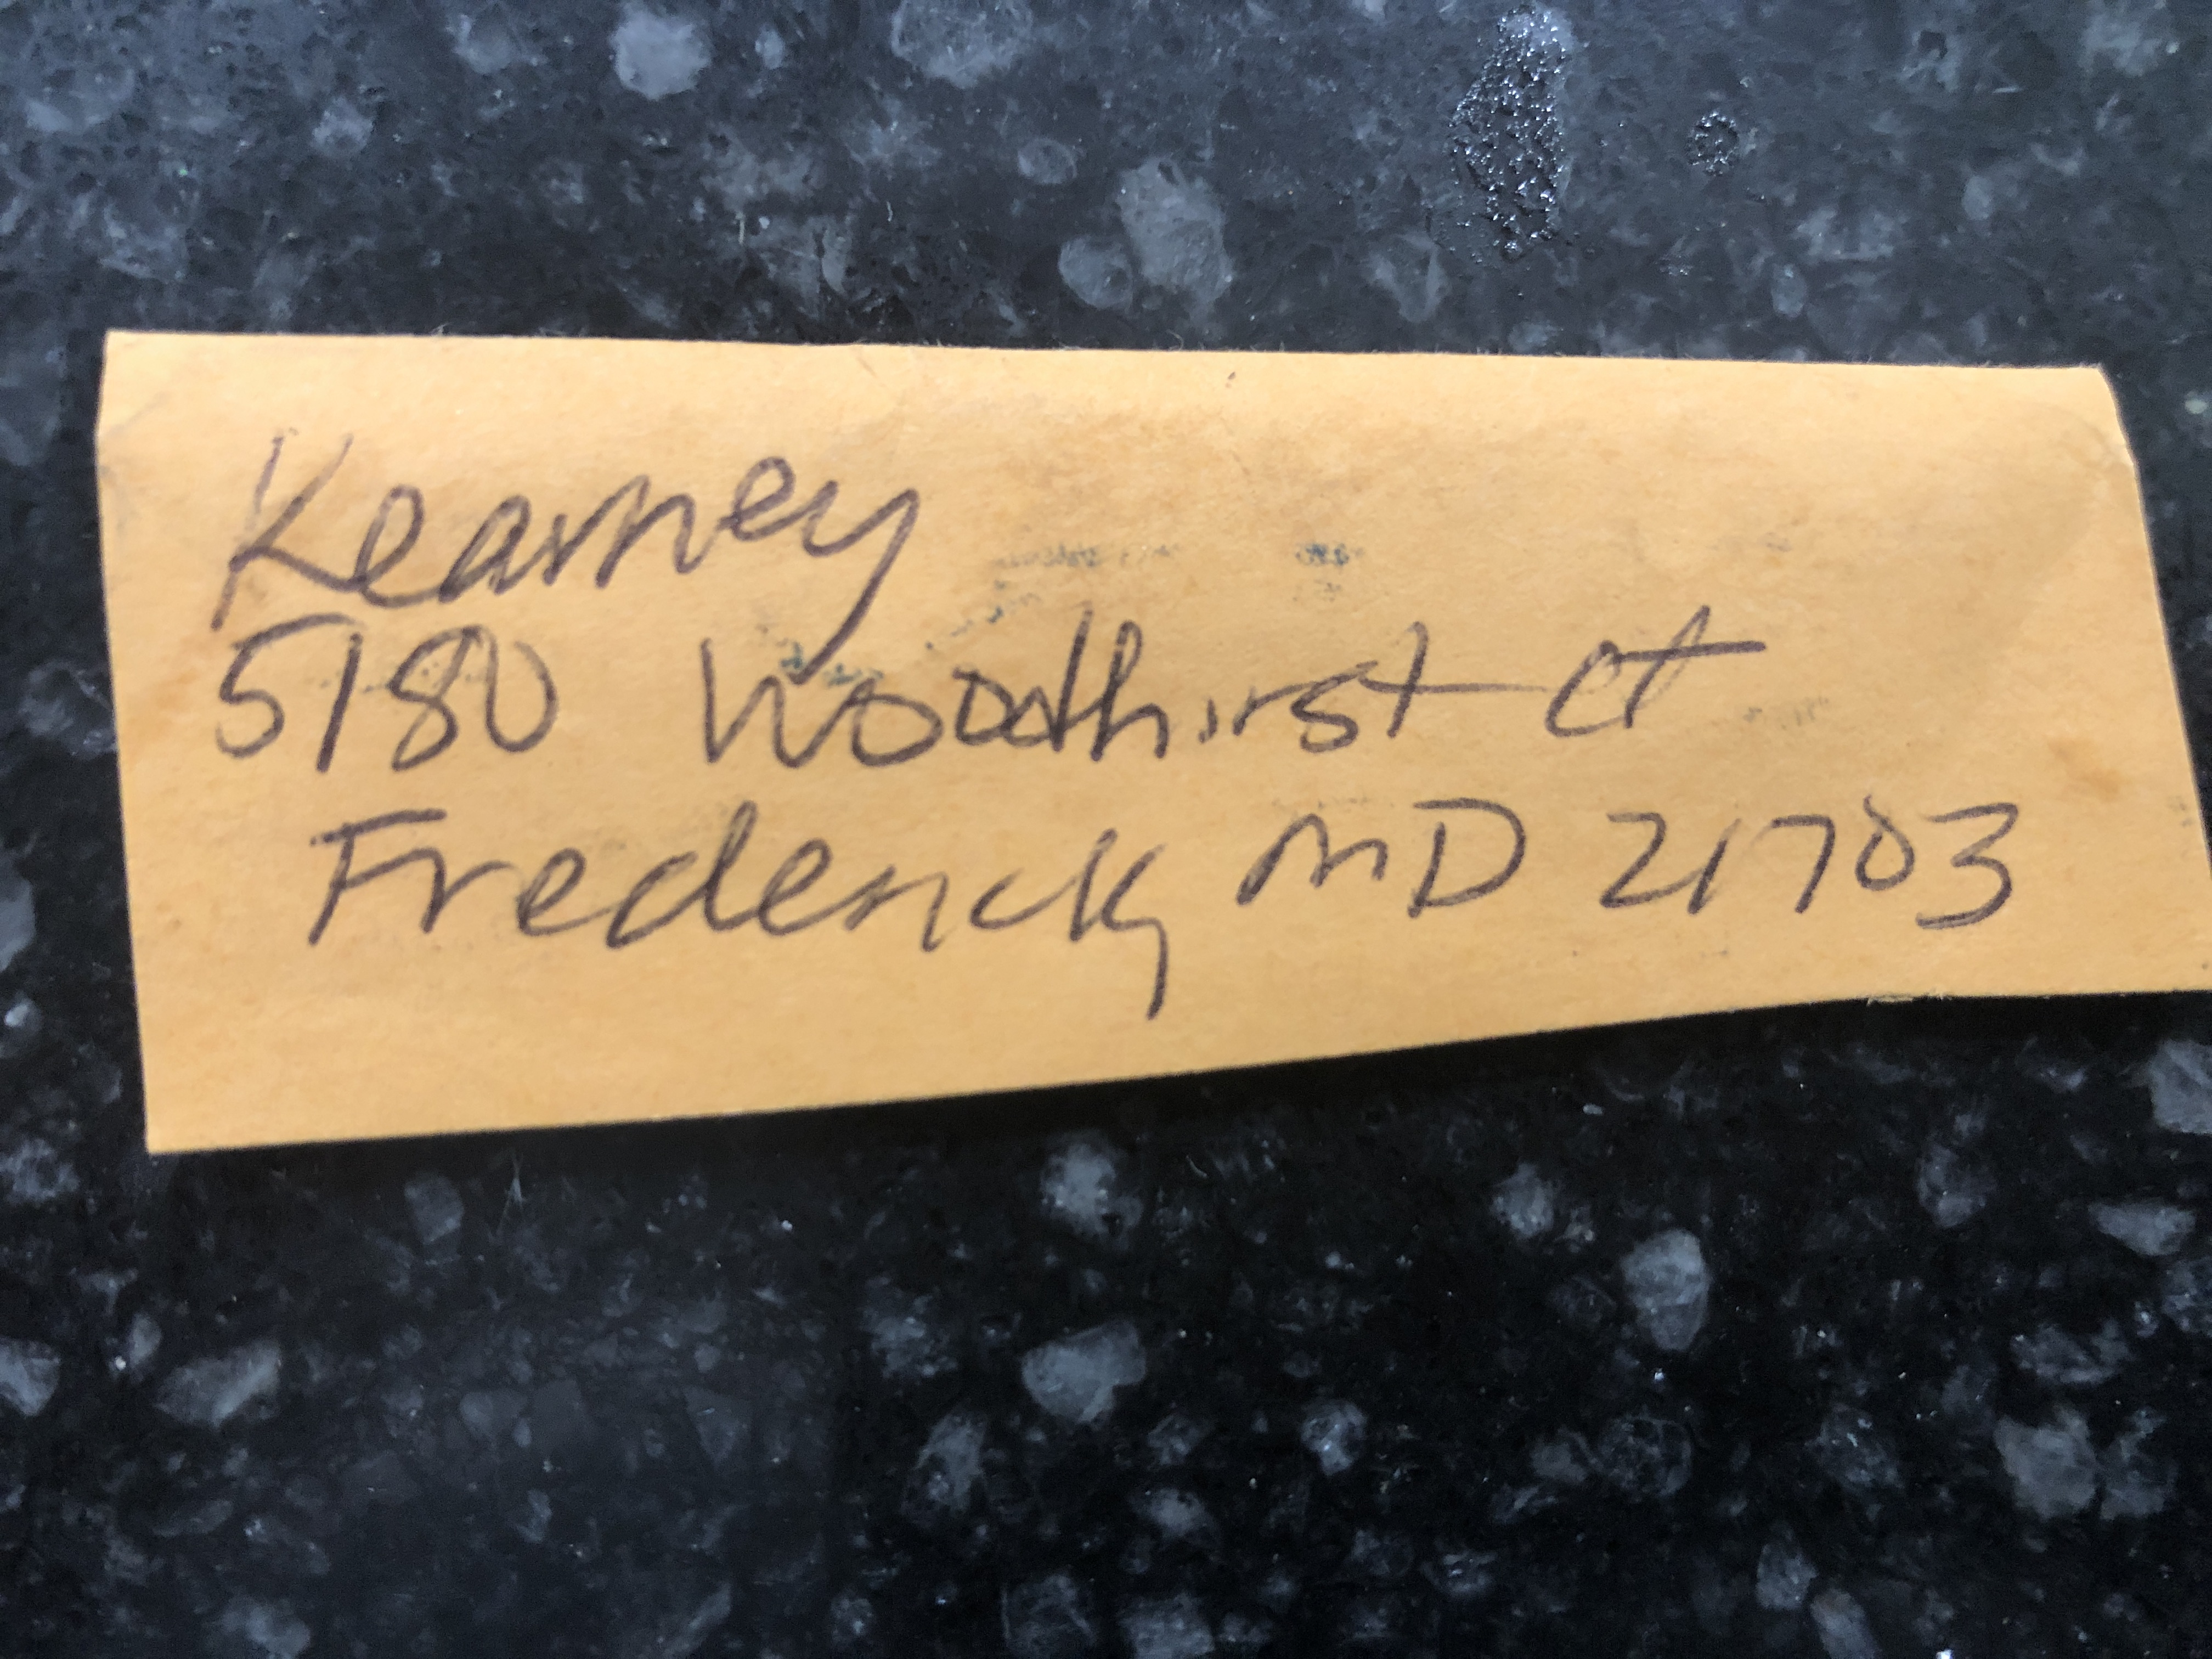 Kearney
5180 Woodhirst Ct
Frederick, MD 21703